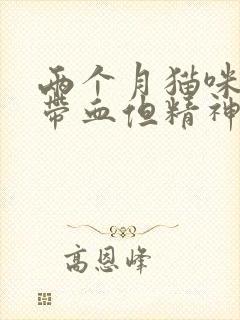 两个月猫咪
带血但精神
高恩峰